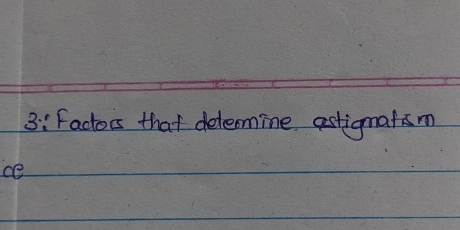 3:. Factors that determine astigmatism
ce